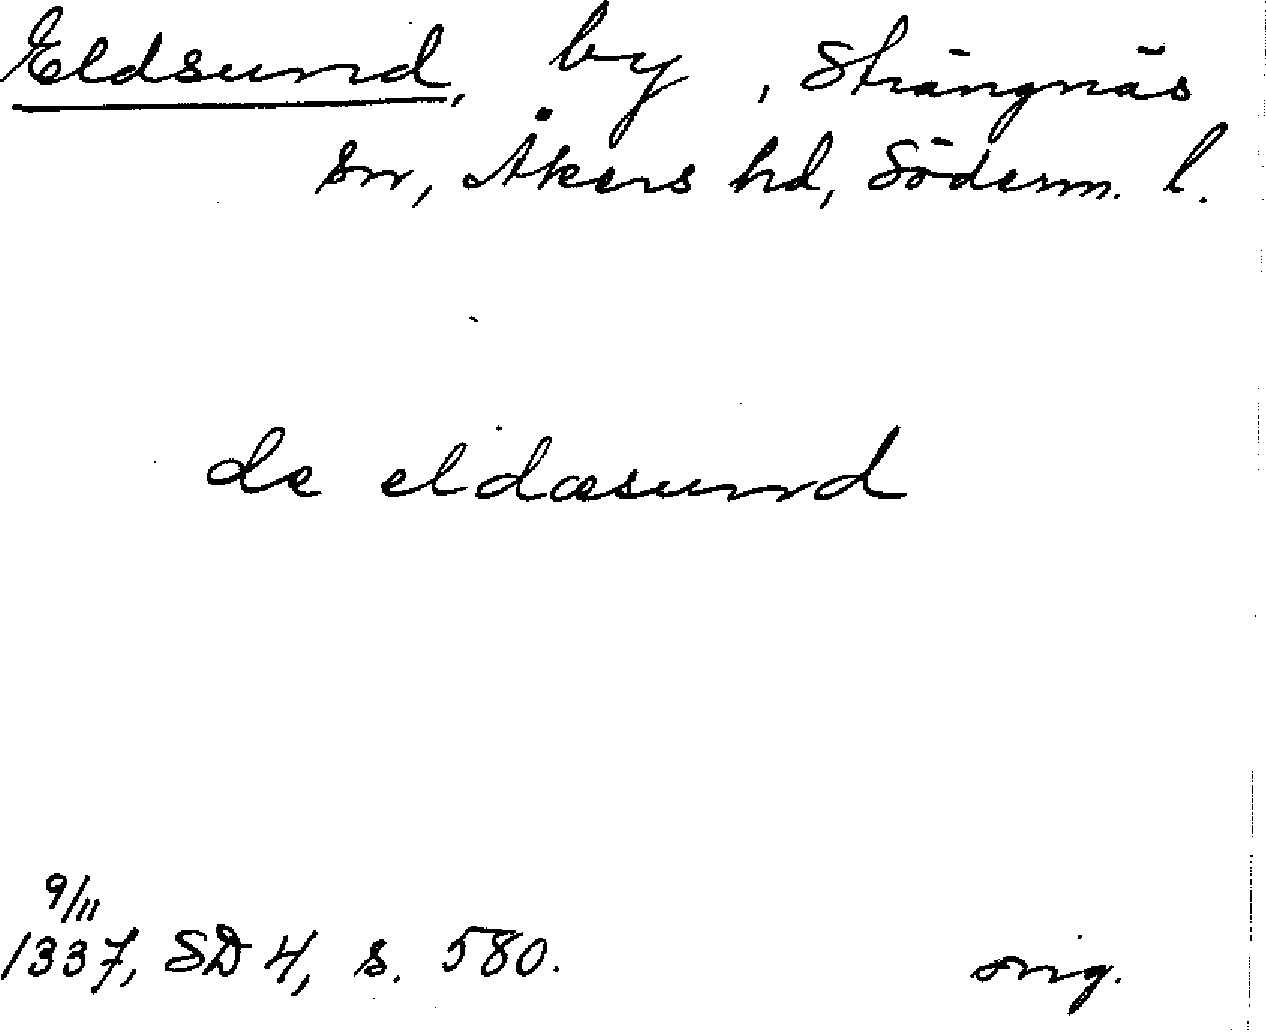 Eldsund, by, Strängnäs
sn, Åkers hd, Söderm. l.
de eldæsund
9/11
1337, SD 4, s. 580.
orig.